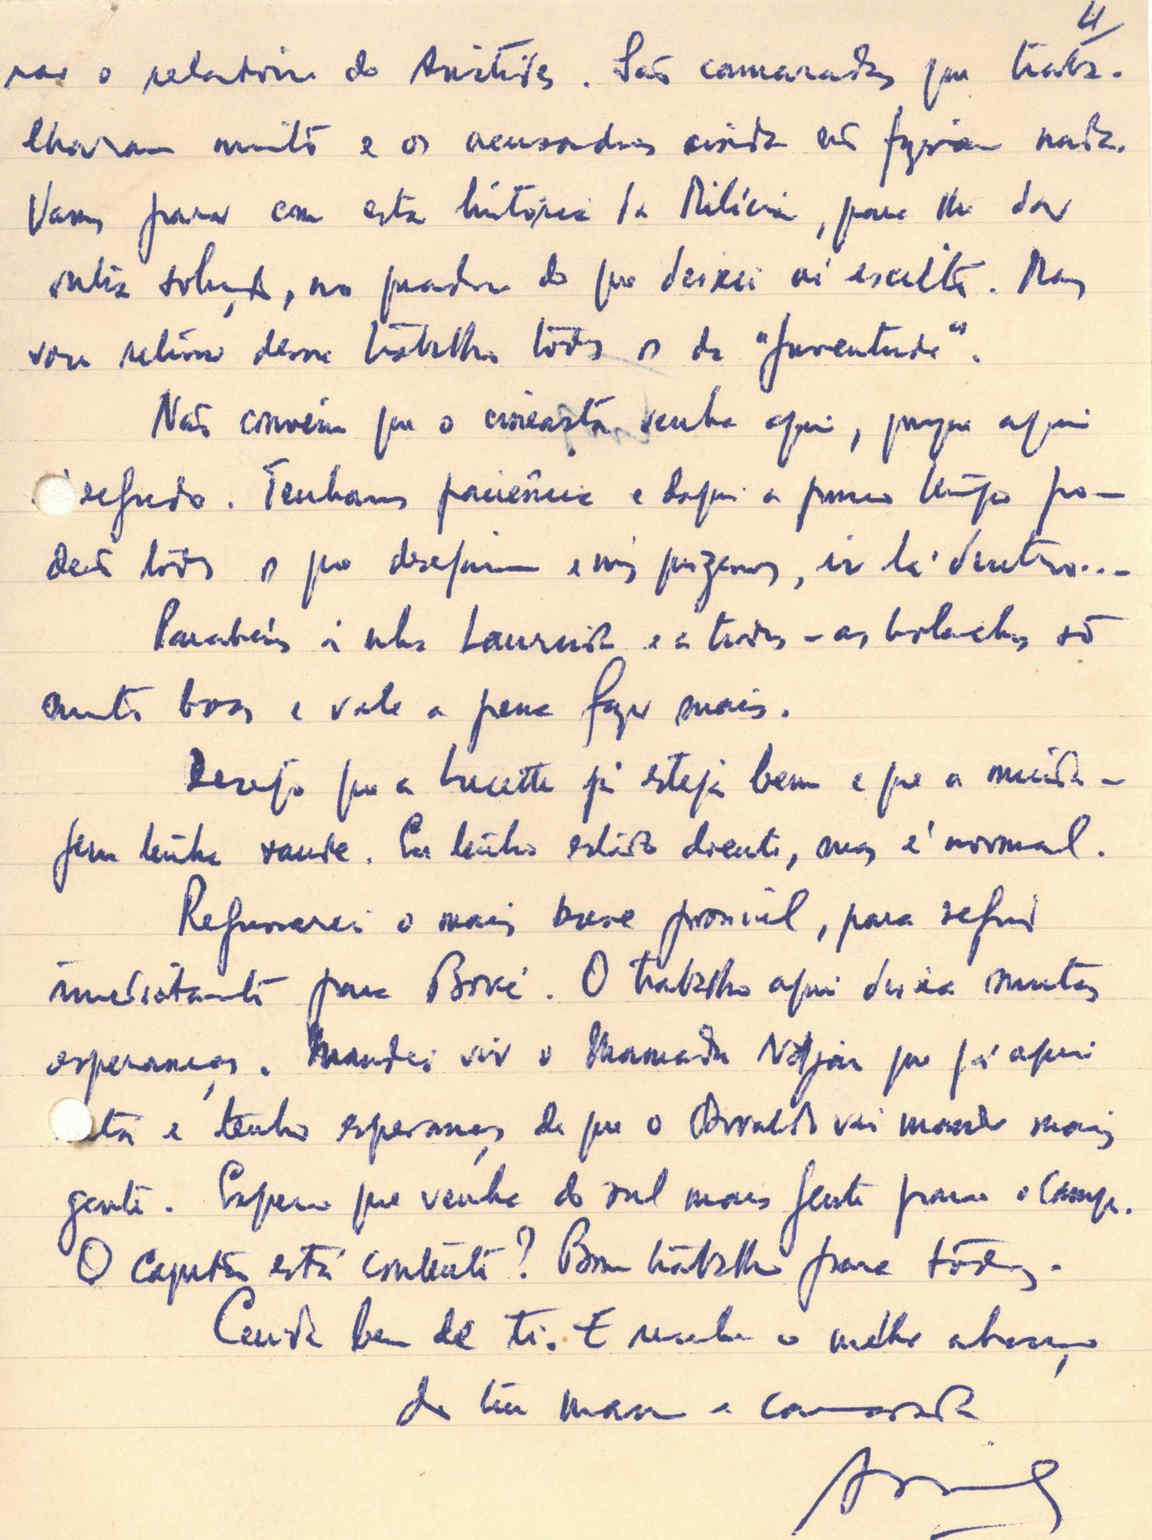 4
rar o relatório do Aristides. São camaradas que traba-
lharam muito e os acusadores ainda não fizeram nada.
Vamos parar com esta história da Milícia, para lhe dar
outra solução, no quadro do que deixei aí escrito. Mas
vou retirar desse trabalho todos os da "Juventude".
Não convém que o cineasta venha aqui, porque aqui
é segredo. Tenhamos paciência e daqui a pouco tempo po-
derão todos os que desejarem e nós quizermos, ir lá dentro...
Parabéns à nha Laurinda e a todos - as bolachas são
muito boas e vale a pena fazer mais.
Desejo que a Lucette já esteja bem e que a meida-
gem tenha saude. Eu tenho estado doente, mas é normal.
Regressarei o mais breve possível, para seguir
imediatamente para Boké. O trabalho aqui deixa muitas
esperanças. Mandei vir o Mamadu Ndjai que já aqui
está e tenho esperanças de que o Osvaldo vai mandar mais
gente. Espero que venha do sul mais gente para o Camp.
O capitão está contente? Bom trabalho para todos.
Cuida bem de ti. E recebe o melhor abraço
do teu mano e camarada